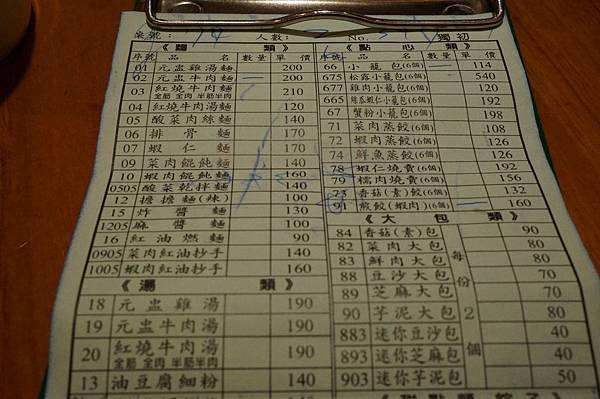 桌號: 人數: No. 獨初
《麵 類》
序號 品 名 數量 單價
01 元盅雞湯麵 200
02 元盅牛肉麵 200
03 紅燒牛肉麵 210
全筋 全肉 半筋半肉
04 紅燒牛肉湯麵 120
05 酸菜肉絲麵 140
06 排骨麵 170
07 蝦仁麵 170
09 菜肉餛飩麵 140
10 蝦肉餛飩麵 160
0505 酸菜乾拌麵 140
12 擔擔麵(辣) 100
15 炸醬麵 130
1205 麻醬麵 100
16 紅油燃麵 90
0905 菜肉紅油抄手 140
1005 蝦肉紅油抄手 160
《湯 類》
18 元盅雞湯 190
19 元盅牛肉湯 190
20 紅燒牛肉湯 190
全筋 全肉 半筋半肉
13 油豆腐細粉 140
《點心類》
序號 品 名 數量 單價
66 小籠包(6個) 114
675 松露小籠包(6個) 540
677 雞肉小籠包(6個) 120
665 絲瓜蝦仁小籠包(6個) 192
67 蟹粉小籠包(6個) 198
71 菜肉蒸餃(6個) 108
72 蝦肉蒸餃(6個) 126
74 鮮魚蒸餃(6個) 126
78 蝦仁燒賣(6個) 192
79 糯肉燒賣(6個) 156
73 香菇(素)餃(6個) 132
91 煎餃(蝦肉)(6個) 160
《大包類》
84 香菇(素)包 90
82 菜肉大包 80
83 鮮肉大包 80
88 豆沙大包 70
89 芝麻大包 70
90 芋泥大包 80
883 迷你豆沙包 40
893 迷你芝麻包 40
903 迷你芋泥包 50
每份2個